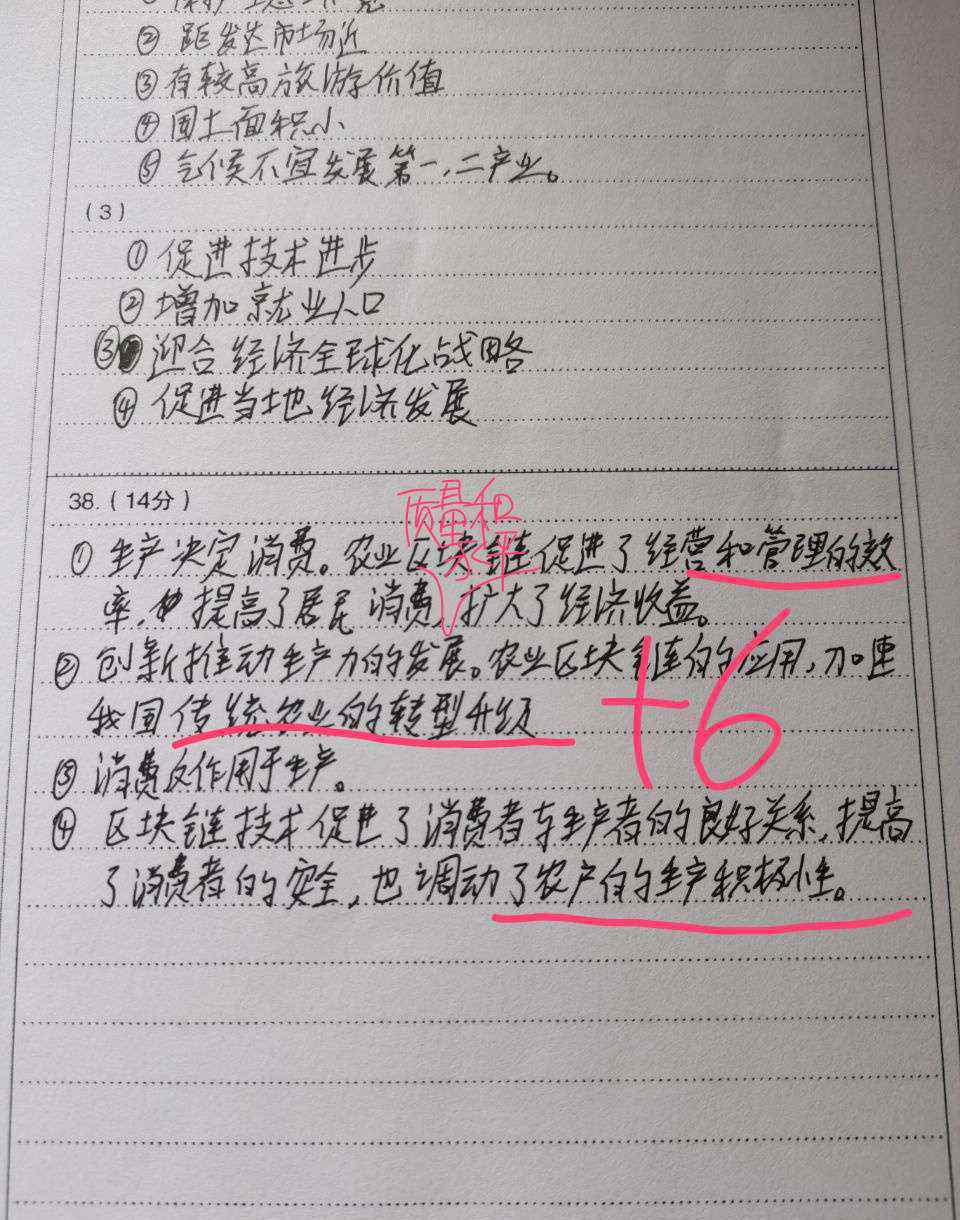 ② 距发达市场近
③ 有较高旅游价值
④ 国土面积小
⑤ 气候不宜发展第一、二产业。
(3)
① 促进技术进步
② 增加就业人口
③ 迎合经济全球化战略
④ 促进当地经济发展
38.(14分)
质量和
水平
① 生产决定消费。农业区块链促进了经营和管理的效
率,提高了居民消费,扩大了经济收益。
② 创新推动生产力的发展。农业区块链的应用,加速
我国传统农业的转型升级
+6
③ 消费反作用于生产。
④ 区块链技术促进了消费者与生产者的良好关系,提高
了消费者的安全,也调动了农户的生产积极性。